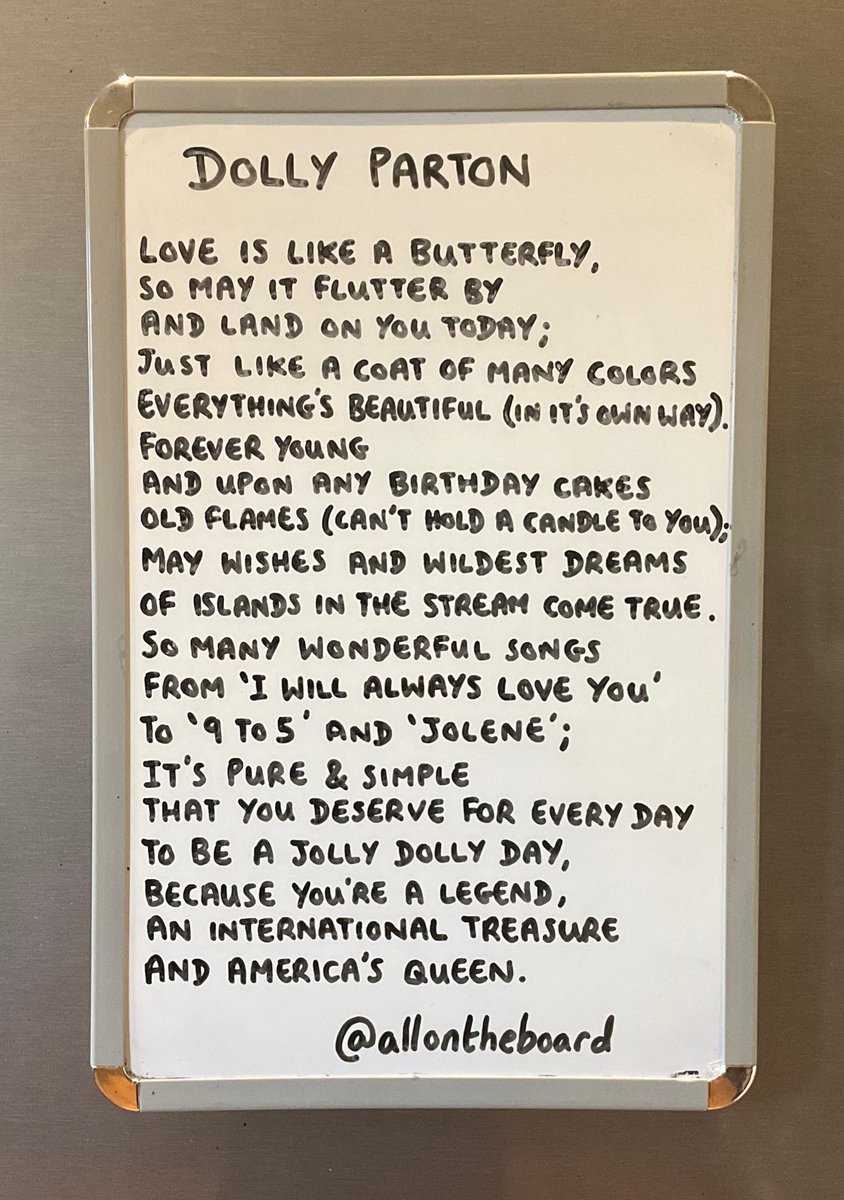 DOLLY PARTON
LOVE IS LIKE A BUTTERFLY,
SO MAY IT FLUTTER BY
AND LAND ON YOU TODAY;
JUST LIKE A COAT OF MANY COLORS
EVERYTHING'S BEAUTIFUL (IN IT'S OWN WAY).
FOREVER YOUNG
AND UPON ANY BIRTHDAY CAKES
OLD FLAMES (CAN'T HOLD A CANDLE TO YOU);
MAY WISHES AND WILDEST DREAMS
OF ISLANDS IN THE STREAM COME TRUE.
SO MANY WONDERFUL SONGS
FROM 'I WILL ALWAYS LOVE YOU'
TO '9 TO 5' AND 'JOLENE';
IT'S PURE & SIMPLE
THAT YOU DESERVE FOR EVERY DAY
TO BE A JOLLY DOLLY DAY,
BECAUSE YOU'RE A LEGEND,
AN INTERNATIONAL TREASURE
AND AMERICA'S QUEEN.
@allontheboard